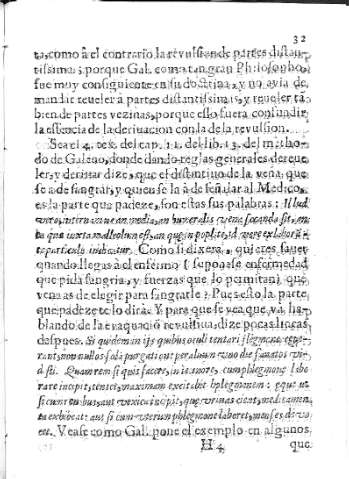 32
ta, como à el contrario la revulsion de partes distan-
tissimas; porque Gal. como tan gran Philosopho,
fue muy consiguiente en su doctrina, y no avia de
mandar reveler à partes distantissimas, y reveler ta
bien de partes vezinas, porque esso fuera confundir
la essencia de la derivacion con la de la revulsion.
Sea el 4. text. del cap. 11. del lib. 13. del metho-
do de Galeno, donde dando reglas generales de reve
ler, y derivar dize, que el distintivo de la vena, que
se à de sangrar, y quien se la à de señalar al Medico,
es la parte que padeze, son estas sus palabras: Illud
vero, utrum vena media, an humeralis secanda sit, an
que iuxta malleolum est, an que in poplite, id vero ex laboran
te particula indicatur. Como si dixera, quieres saver
quando llegas à el enfermo (supposse enfermedad
que pida sangria, y fuerzas que lo permitan) que
vena as de elegir para sangrarle? Pues esso la parte
que padeze te lo dirà: Y para que se vea que và ha-
blando de la evaquaciõ revulsiva, dize pocas lineas
despues. Si quidem in ijs quibus oculi tentari phlegmone
rant, non nullos sola purgatione per alvum uno die sanatos vi-
dsti. cum phlegmone labo
rare incipientes, maximam excitabit phlegmonem:
que urinas cient, medicamen
ta exhibeat: aut si cum uterum phlegmone laboret, menses
eat. Vease como Gal. pone el exemplo en algunos
H 4 que